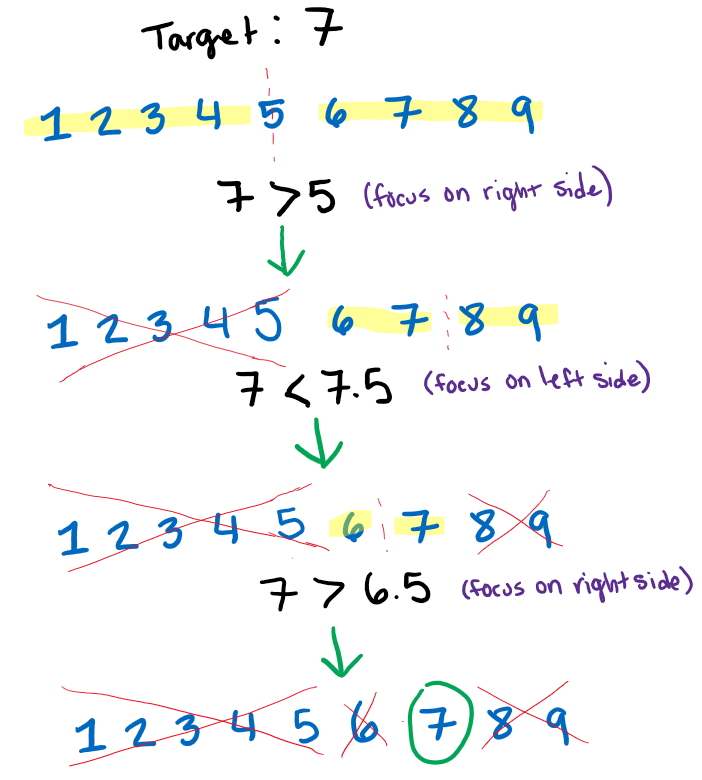 Target: 7
1 2 3 4 5 6 7 8 9
7 > 5 (focus on right side)
1 2 3 4 5 6 7 8 9
7 < 7.5 (focus on left side)
1 2 3 4 5 6 7 8 9
7 > 6.5 (focus on right side)
1 2 3 4 5 6 7 8 9